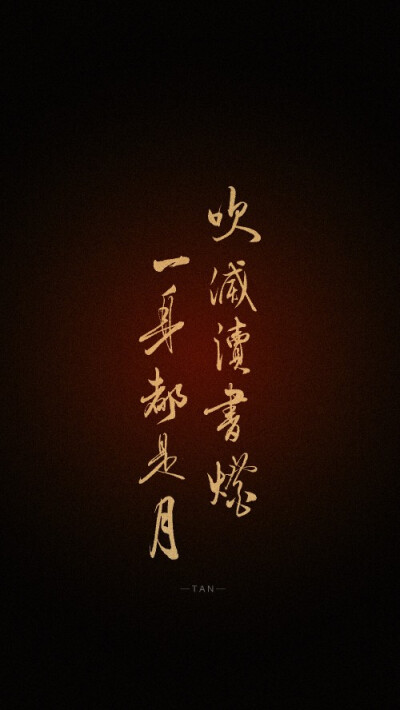 吹滅讀書燈
一身都是月
—TAN—